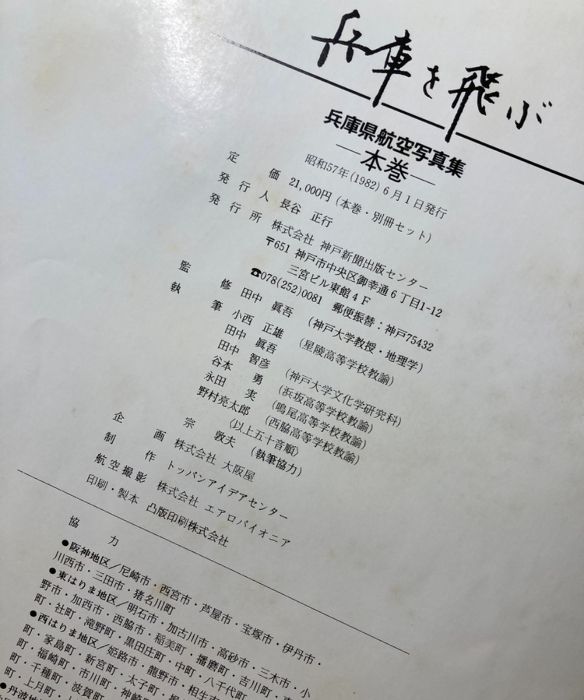 兵庫を飛ぶ
兵庫県航空写真集
―本巻―
昭和57年(1982)6月1日発行
定価 21,000円(本巻・別冊セット)
発行人 長谷 正行
発行所 株式会社 神戸新聞出版センター
〒651 神戸市中央区御幸通6丁目1-12
三宮ビル東館4F
☎078(252)0081 郵便振替:神戸75432
監修 田中 眞吾 (神戸大学教授・地理学)
執筆 小西 正雄 (星陵高等学校教諭)
田中 眞吾
田中 智彦 (神戸大学文化学研究科)
谷本 勇 (浜坂高等学校教諭)
永田 実 (鳴尾高等学校教諭)
野村亮太郎 (西脇高等学校教諭)
(以上五十音順)
宗 敦夫 (執筆協力)
企画 株式会社 大阪屋
制作 トッパンアイデアセンター
航空撮影 株式会社 エアロパイオニア
印刷・製本 凸版印刷株式会社
協力
●阪神地区/尼崎市・西宮市・芦屋市・宝塚市・伊丹市・
川西市・三田市・猪名川町
●東はりま地区/明石市・加古川市・高砂市・三木市・小
野市・加西市・西脇市・稲美町・播磨町・吉川町・東
町・社町・滝野町・黒田庄町・中町・八千代町
●西はりま地区/姫路市・龍野市・相生市
町・家島町・新宮町・太子町・
・福崎町・市川町・神崎
・千種町・波賀町
町・上月町・
●丹波地